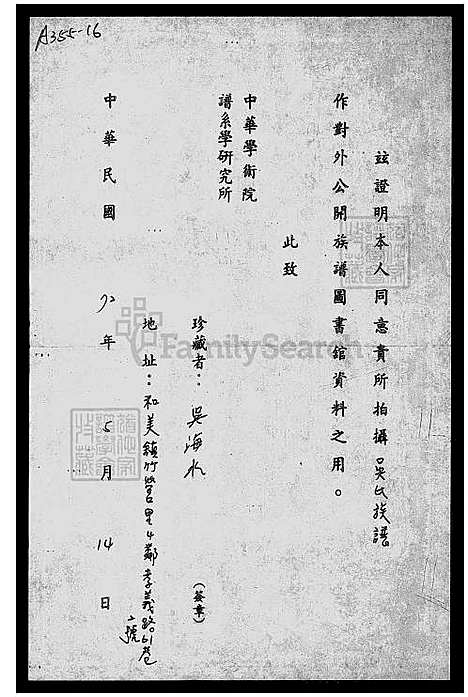 A355-16
玆證明本人同意貴所拍攝吳氏族譜
作對外公開族譜圖書館資料之用。
此致
中華學術院
譜系學研究所
珍藏者：吳海水
(簽章)
地址：和美鎮竹營里4鄰孝義路61巷
2號
中華民國72年5月14日
FamilySearch